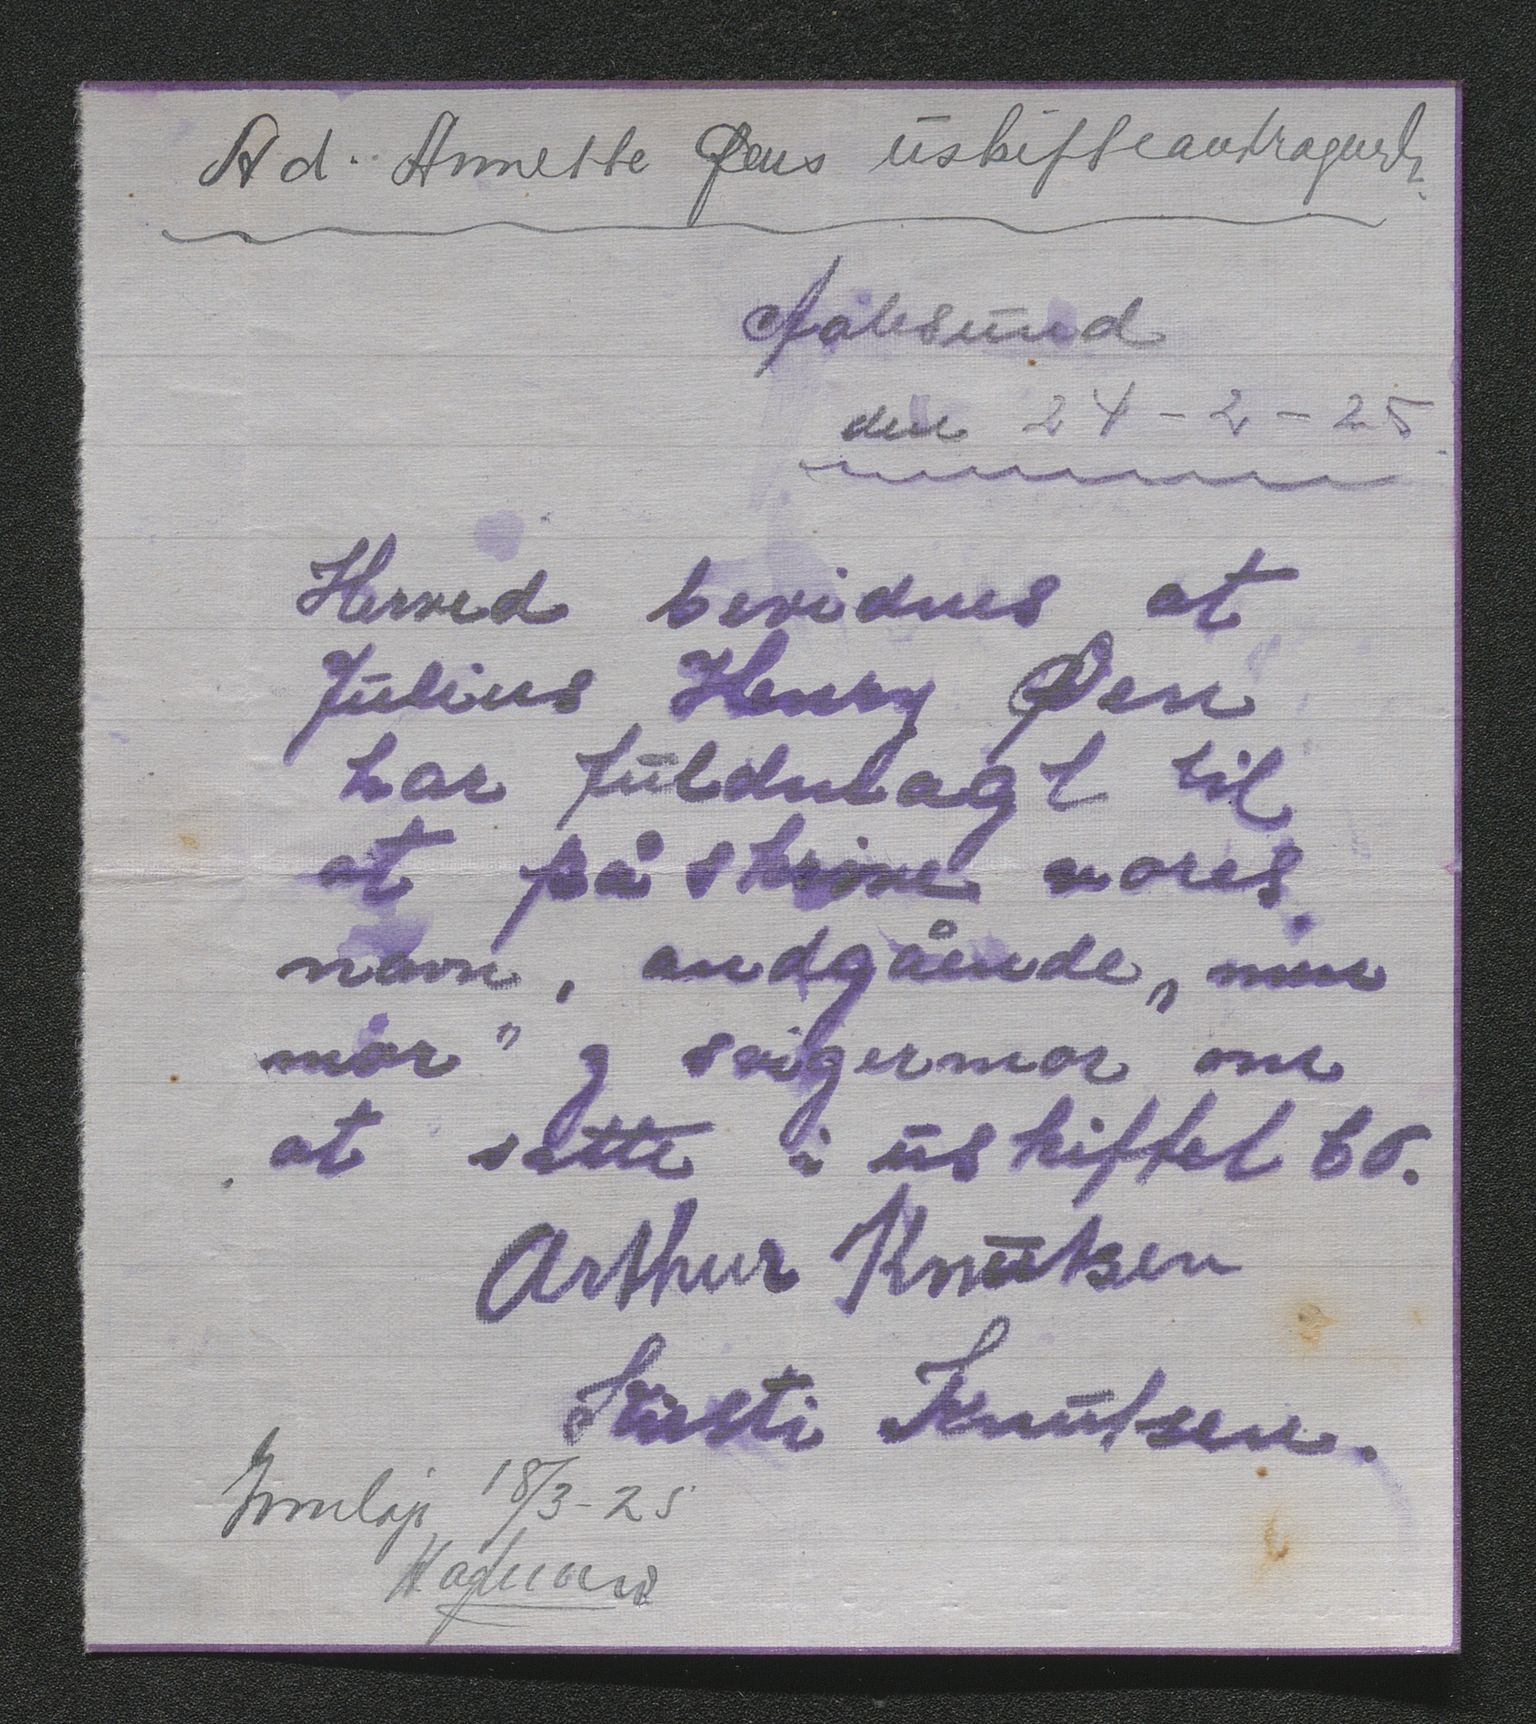 Ad. Annette Øens uskifteandragende.
den 24-2-25.
Herved bevidnes at
Julius Henry Øen
har fuldmagt til
at påskrive vores
navn, andgående „min
mor” g svigermor om
at sette i uskiftet bo.
Arthur Knutsen
Kirsti Knutsen.
18/3-25